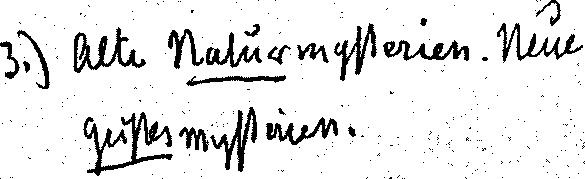 3.) Alte Naturmysterien. Neue
Geistesmysterien.